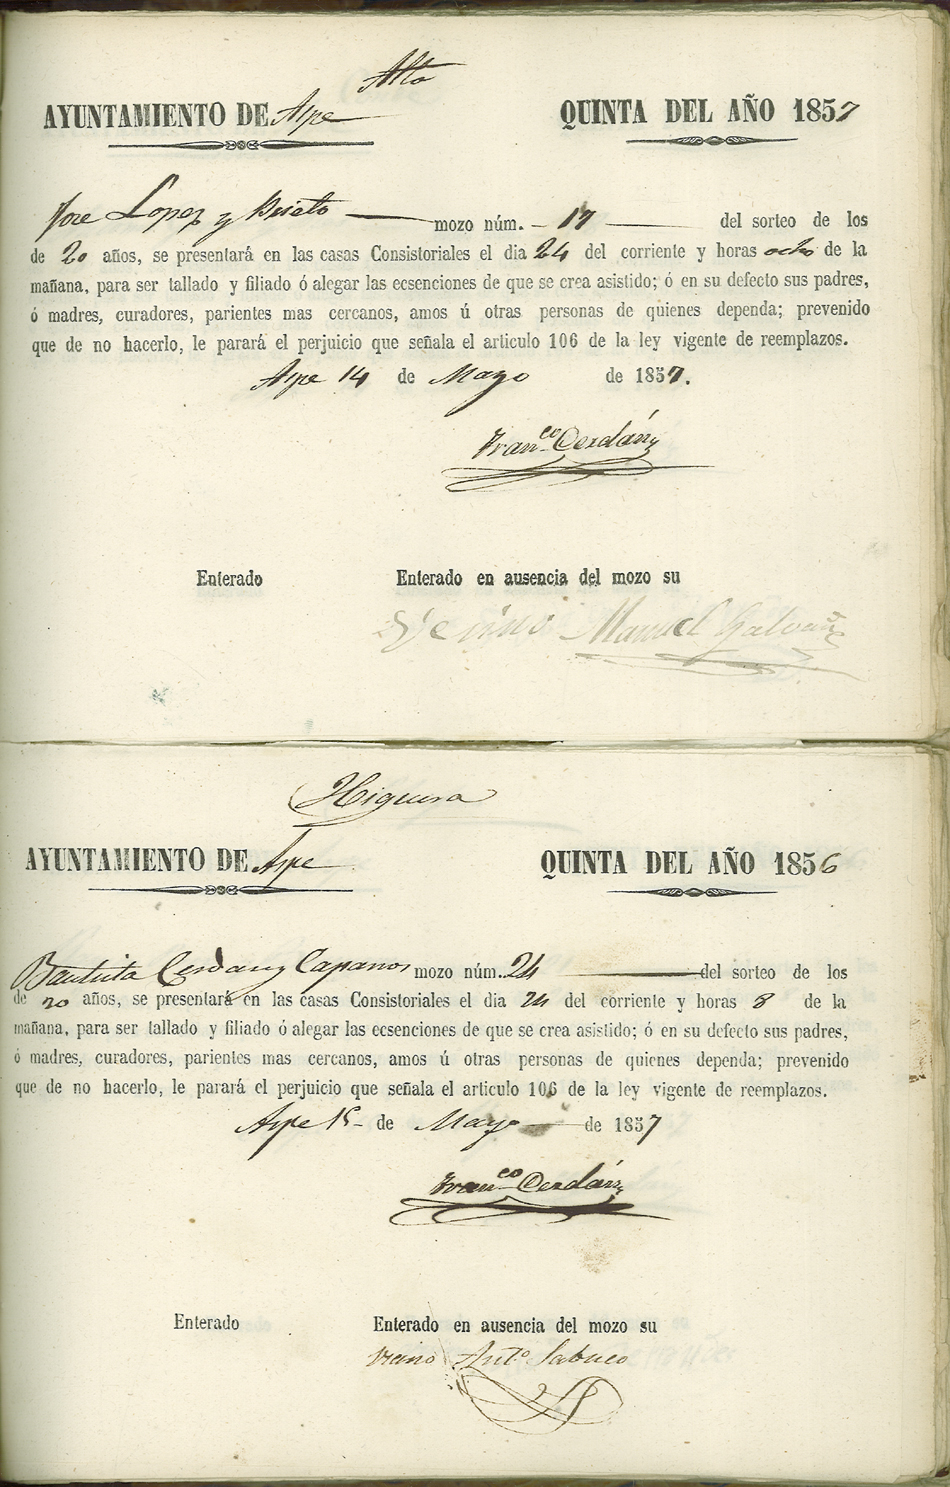 Alta
AYUNTAMIENTO DE Aspe QUINTA DEL AÑO 1857
Jose Lopez y Prieto mozo núm. 17 del sorteo de los
de 20 años, se presentará en las casas Consistoriales el dia 24 del corriente y horas ocho de la
mañana, para ser tallado y filiado ó alegar las ecsenciones de que se crea asistido; ó en su defecto sus padres,
ó madres, curadores, parientes mas cercanos, amos ú otras personas de quienes dependa; prevenido
que de no hacerlo, le parará el perjuicio que señala el articulo 106 de la ley vigente de reemplazos.
Aspe 14 de Mayo de 1857.
Fran.co Cerdán
Enterado Enterado en ausencia del mozo su
Vecino Manuel Galvañ
Higuera
AYUNTAMIENTO DE Aspe QUINTA DEL AÑO 1856
Bautista Cerdan y Caparros mozo núm. 24 del sorteo de los
de 20 años, se presentará en las casas Consistoriales el dia 24 del corriente y horas 8 de la
mañana, para ser tallado y filiado ó alegar las ecsenciones de que se crea asistido; ó en su defecto sus padres,
ó madres, curadores, parientes mas cercanos, amos ú otras personas de quienes dependa; prevenido
que de no hacerlo, le parará el perjuicio que señala el articulo 106 de la ley vigente de reemplazos.
Aspe 15 de Mayo de 1857
Fran.co Cerdán
Enterado Enterado en ausencia del mozo su
Vecino Ant.o Sabuco